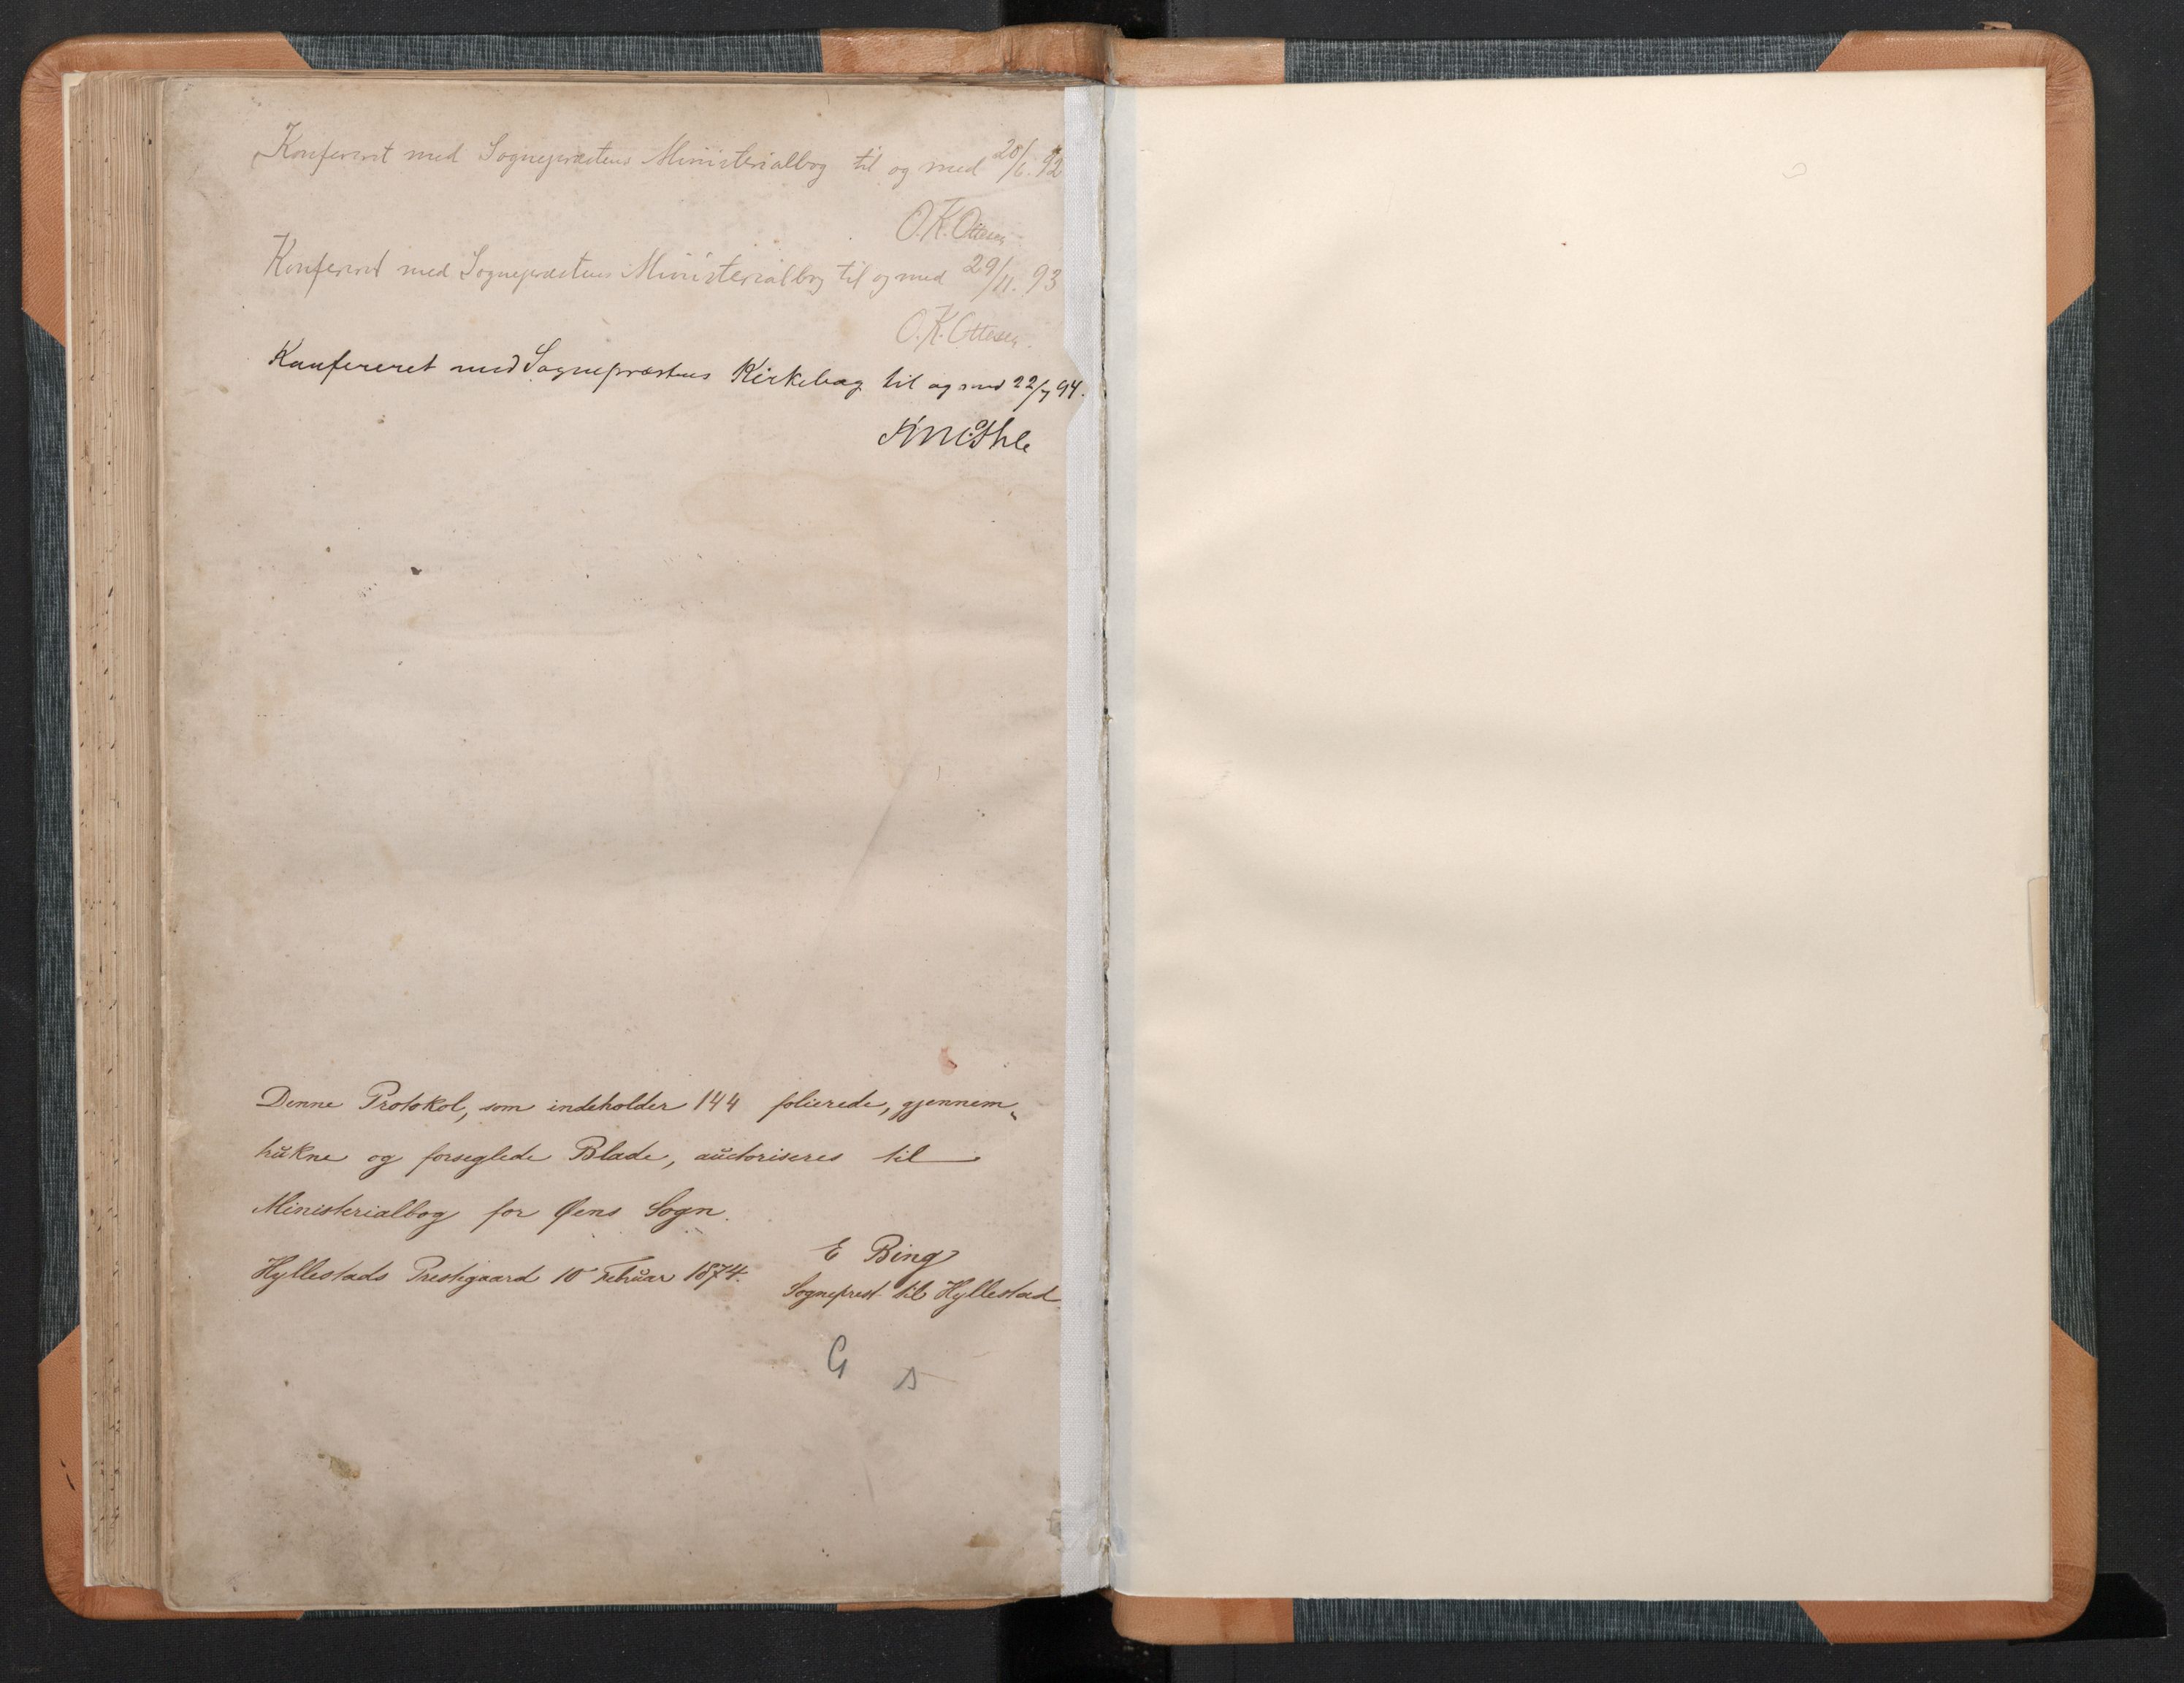 Konfereret med Sognepræstens Ministerialbog til og med 20/6. 92
O. K. Ottesen
Konfereret med Sognepræstens Ministerialbog til og med 29/11. 93
O. K. Ottesen.
Konfereret med Sognepræstens Kirkebog til og med 22/7 94.
Denne Protokol, som indeholder 144 folierede, gjennem-
trukne og forseglede Blade, auctoriseres til
Ministerialbog for Øens Sogn.
Hyllestads Prestegaard 10 Februar 1874.
E Bing
Sogneprest til Hyllestad
G